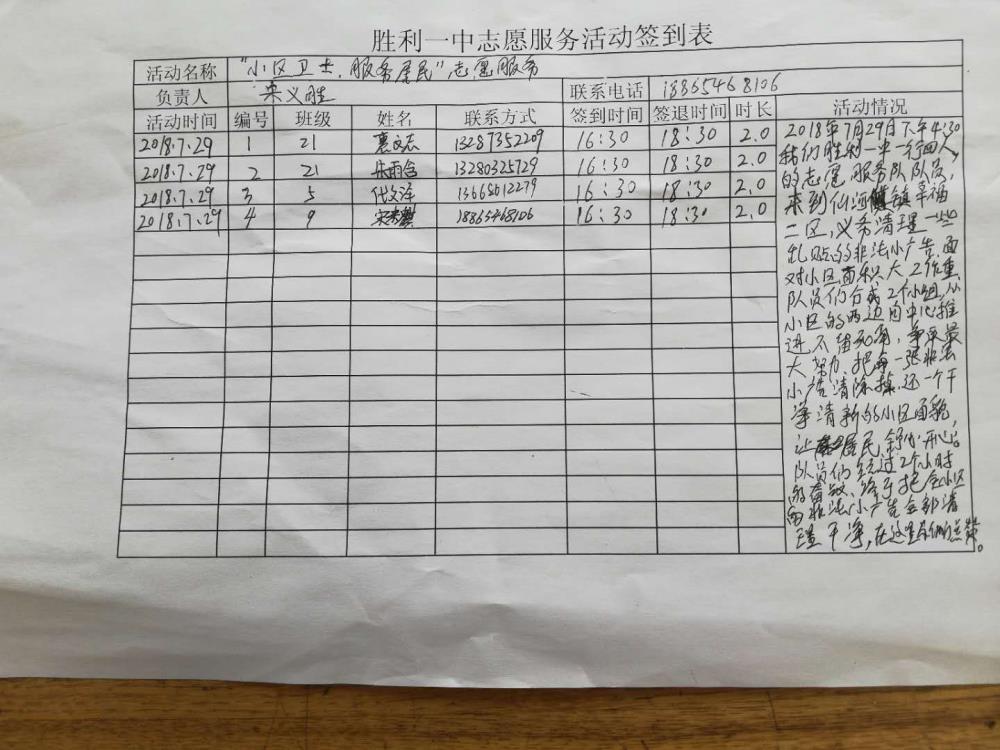 胜利一中志愿服务活动签到表
活动名称 "小区卫士，服务居民"志愿服务
负责人 宋义胜 联系电话 18865468106
活动时间 编号 班级 姓名 联系方式 签到时间 签退时间 时长 活动情况
2018.7.29 1 21 13287352209 16:30 18:30 2.0
2018.7.29 2 21 13280325729 16:30 18:30 2.0
2018.7.29 3 5 15668612279 16:30 18:30 2.0
2018.7.29 4 9 18865468106 16:30 18:30 2.0
2018年7月29日下午4:30
我们胜利一中一行四人
的志愿服务队队员，
来到仙河镇幸福
二区，义务清理一些
乱贴的非法小广告，面
对小区面积大工作重，
队员们分成2个小组，从
小区的两边向中心推
进，不留死角，争取最
大努力，把每一张非法
小广告清除掉，还一个干
净清新的小区面貌，
让居民舒心开心。
队员们经过2个小时
的奋战，终于把全小区
的非法小广告全部清
理干净，在这里为他们点赞。